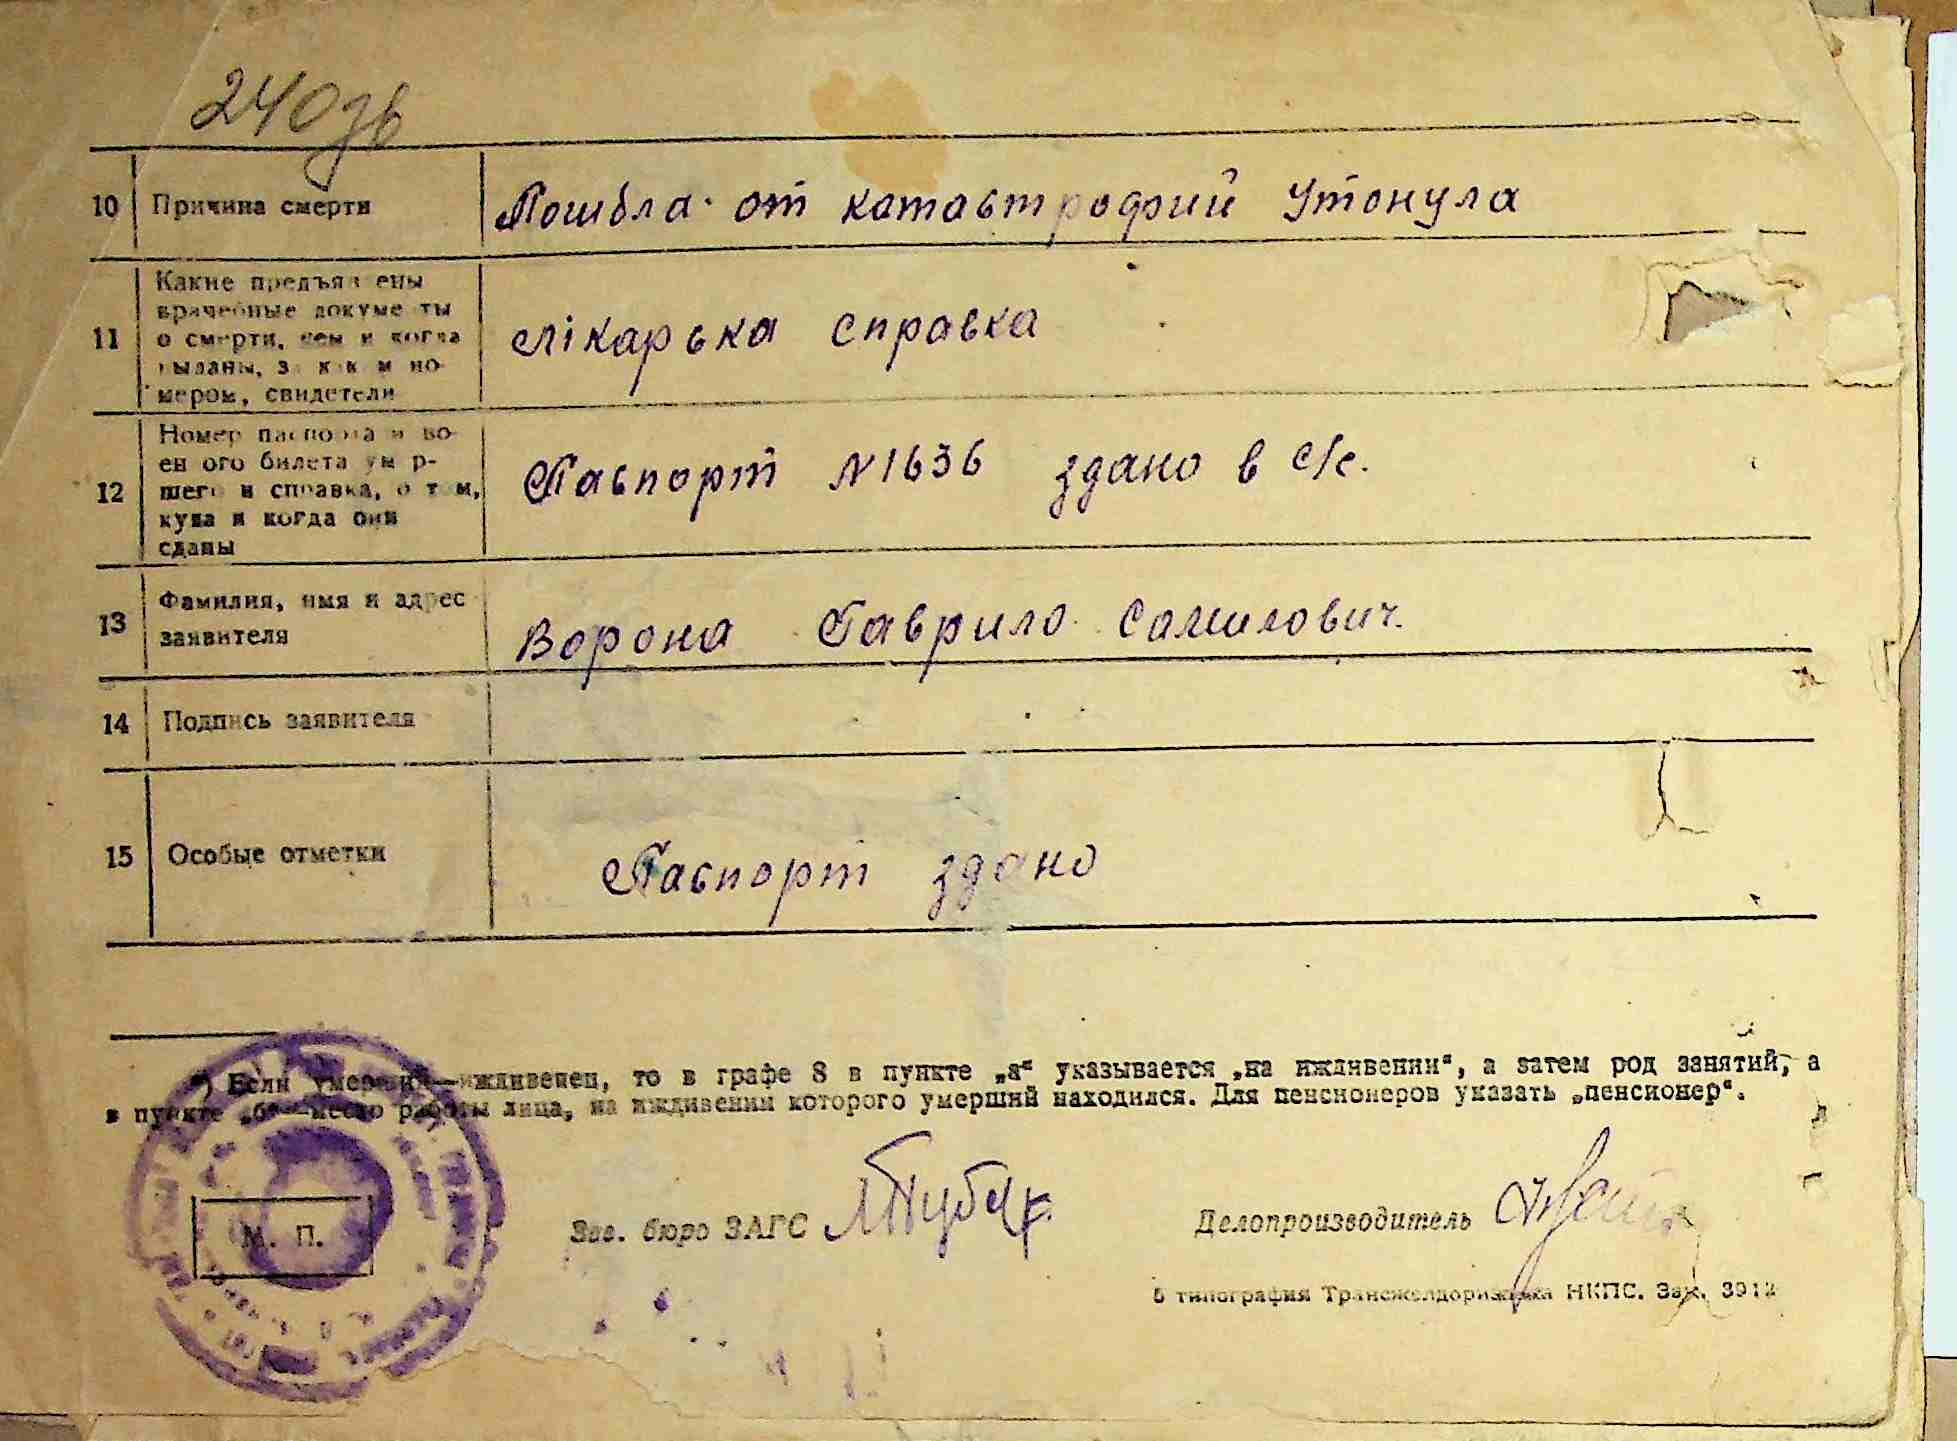 240зв
10 Причина смерти Погибла от катастрофий Утонула
11 Какие предъявлены
врачебные документы
о смерти, кем и когда
выданы, за каким но-
мером, свидетели
лікарька справка
12 Номер паспорта и во-
ен ого билета умер-
шего и справка, о том,
куда и когда они
сданы
Паспорт №1636 здано в с/с.
13 Фамилия, имя и адрес
заявителя
Ворона Гаврило Самилович.
14 Подпись заявителя
15 Особые отметки Паспорт здано
*) Если умерший—иждивенец, то в графе 8 в пункте „а“ указывается „на иждивении“, а затем род занятий, а
в пункте „б“—место работы лица, на иждивении которого умерший находился. Для пенсионеров указать „пенсионер“.
М. П.
Зав. бюро ЗАГС
Делопроизводитель
6 типография Трансжелдориздата НКПС. Зак. 3912